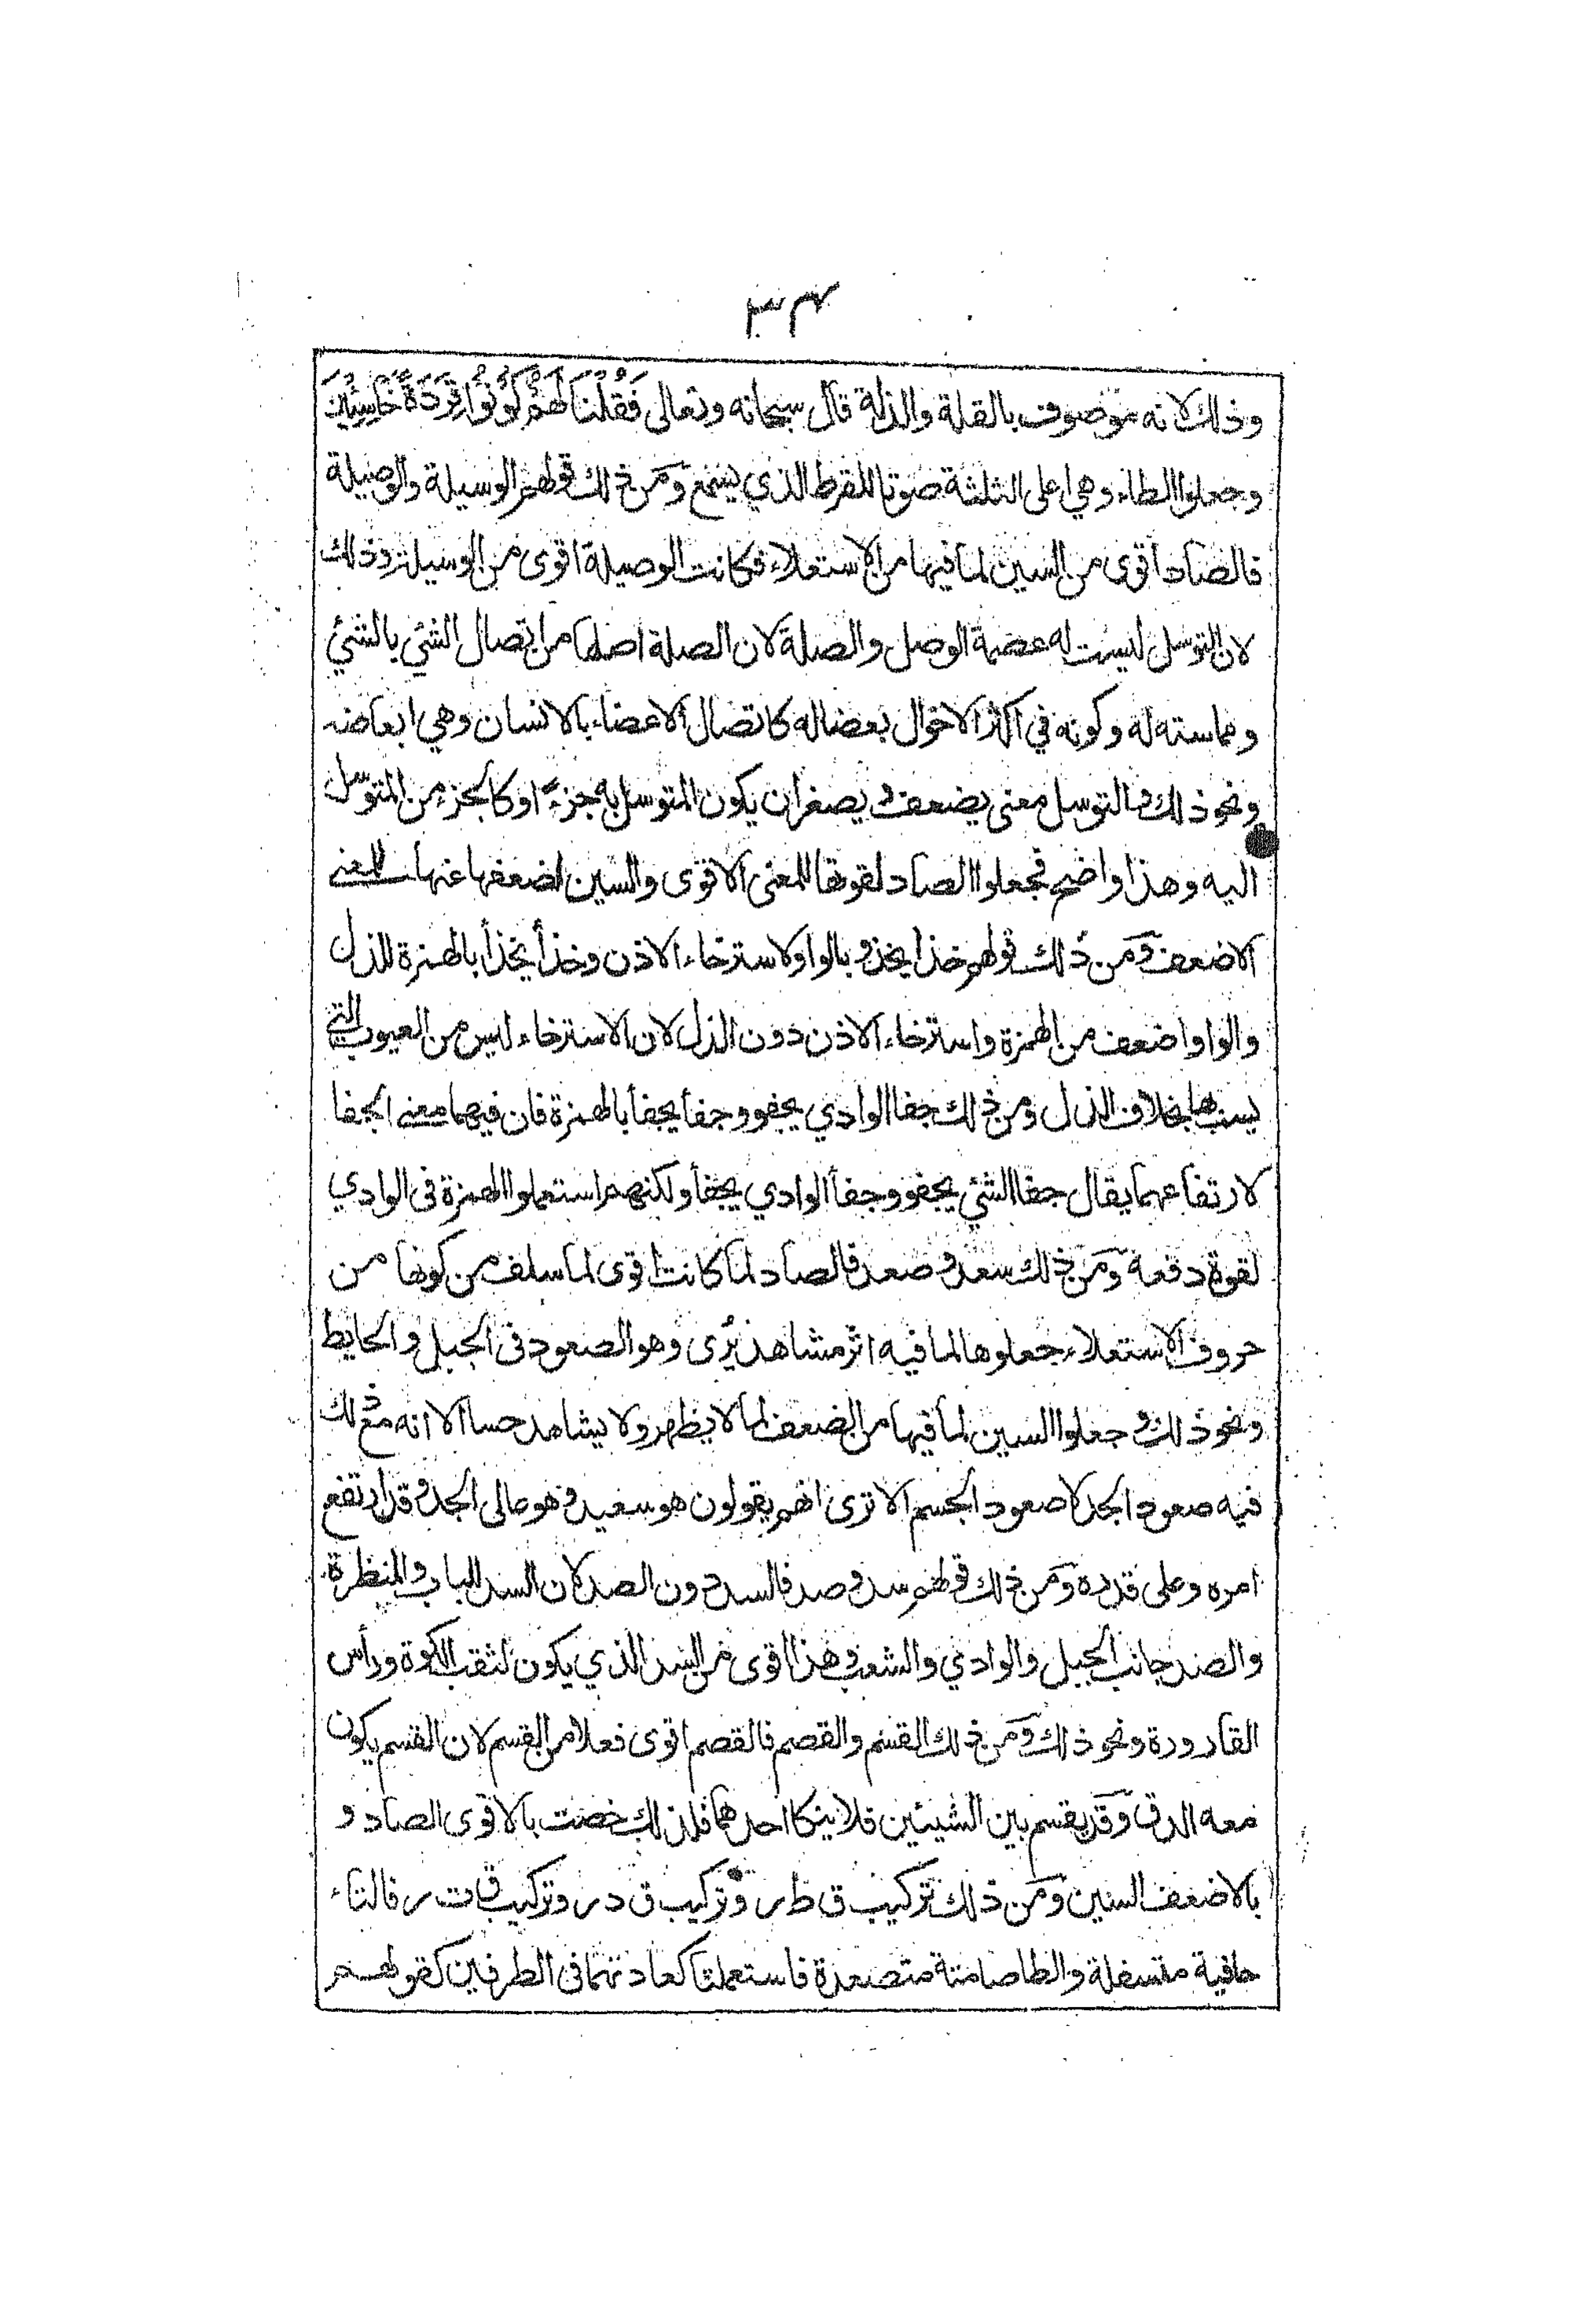 ٣٤
وذلك لانه موصوف بالقلة والذلة قال سبحانه وتعالى فَقُلْنَا لَهُمْ كُوْنُوْا قِرَدَةً خَاسِئِيْنَ
وجعلوا الطاء وهي اعلى الثلثة صوتا للقرط الذي يسمع ومن ذلك قولهم الوسيلة والوصيلة
فالصاد أقوى من السين لما فيها من الاستعلاء فكانت الوصيلة اقوى من الوسيلة وذلك
لان التوسل ليست له عصمة الوصل والصلة لان الصلة اصلها من اتصال الشئي بالشئي
ومماسته له وكونه في اكثر الاحوال بعضاله كاتصال الاعضاء بالانسان وهي ابعاضه
ونحو ذلك والتوسل معنى يضعف ويصغران يكون المتوسل به جزءً اوكالجزء من المتوسل
اليه وهذا واضح فجعلوا الصاد لقوتها للمعنى الاقوى والسين لضعفها عنها للمعنى
الاضعف ومن ذلك قولهم خذا يخذو بالواو لاسترخاء الاذن وخذأ يخذأ بالهمزة للذل
والواو اضعف من الهمزة واسترخاء الاذن دون الذل لان الاسترخاء ليس من العيوب التي
يسب بها بخلاف الذل ومن ذلك جفا الوادي يجفو وجفأ يجفأ بالهمزة فان فيهما معنى الجفا
لارتفاعهما يقال جفا الشئي يجفو وجفأ الوادي يجفأ ولكنهم استعملوا الهمزة فى الوادي
لقوة دفعه ومن ذلك سعد وصعد فالصاد لما كانت اقوى لما سلف من كونها من
حروف الاستعلاء جعلوها لما فيه اثر مشاهد يُرى وهو الصعود فى الجبل والحايط
ونحو ذلك وجعلوا السين لما فيها من الضعف لما لا يظهر ولا يشاهد حسا الا انه مع ذلك
فيه صعود الجد لا صعود الجسم الا ترى انهم يقولون هو سعيد وهو عالى الجد وقد ارتفع
امره وعلى قدره ومن ذلك قولهم سد وصد فالسد دون الصد لان السد للباب والمنظرة
والصد جانب الجبل والوادي والشعب وهذا اقوى من السد الذي يكون لثقب الكوة ورأس
القارورة ونحو ذلك ومن ذلك القسم والقصم فالقصم اقوى فعلا من القسم لان القسم يكون
معه الدق وقد يقسم بين الشيئين فلا ينكا احدهما فلذلك خصت بالاقوى الصاد و
بالاضعف السين ومن ذلك تركيب ق ط ر وتركيب ق د ر وتركيب ق ت ر فالتاء
خافية متسفلة والطا صامتة متصعدة فاستعملتا كعادتهما فى الطرفين كقولهم